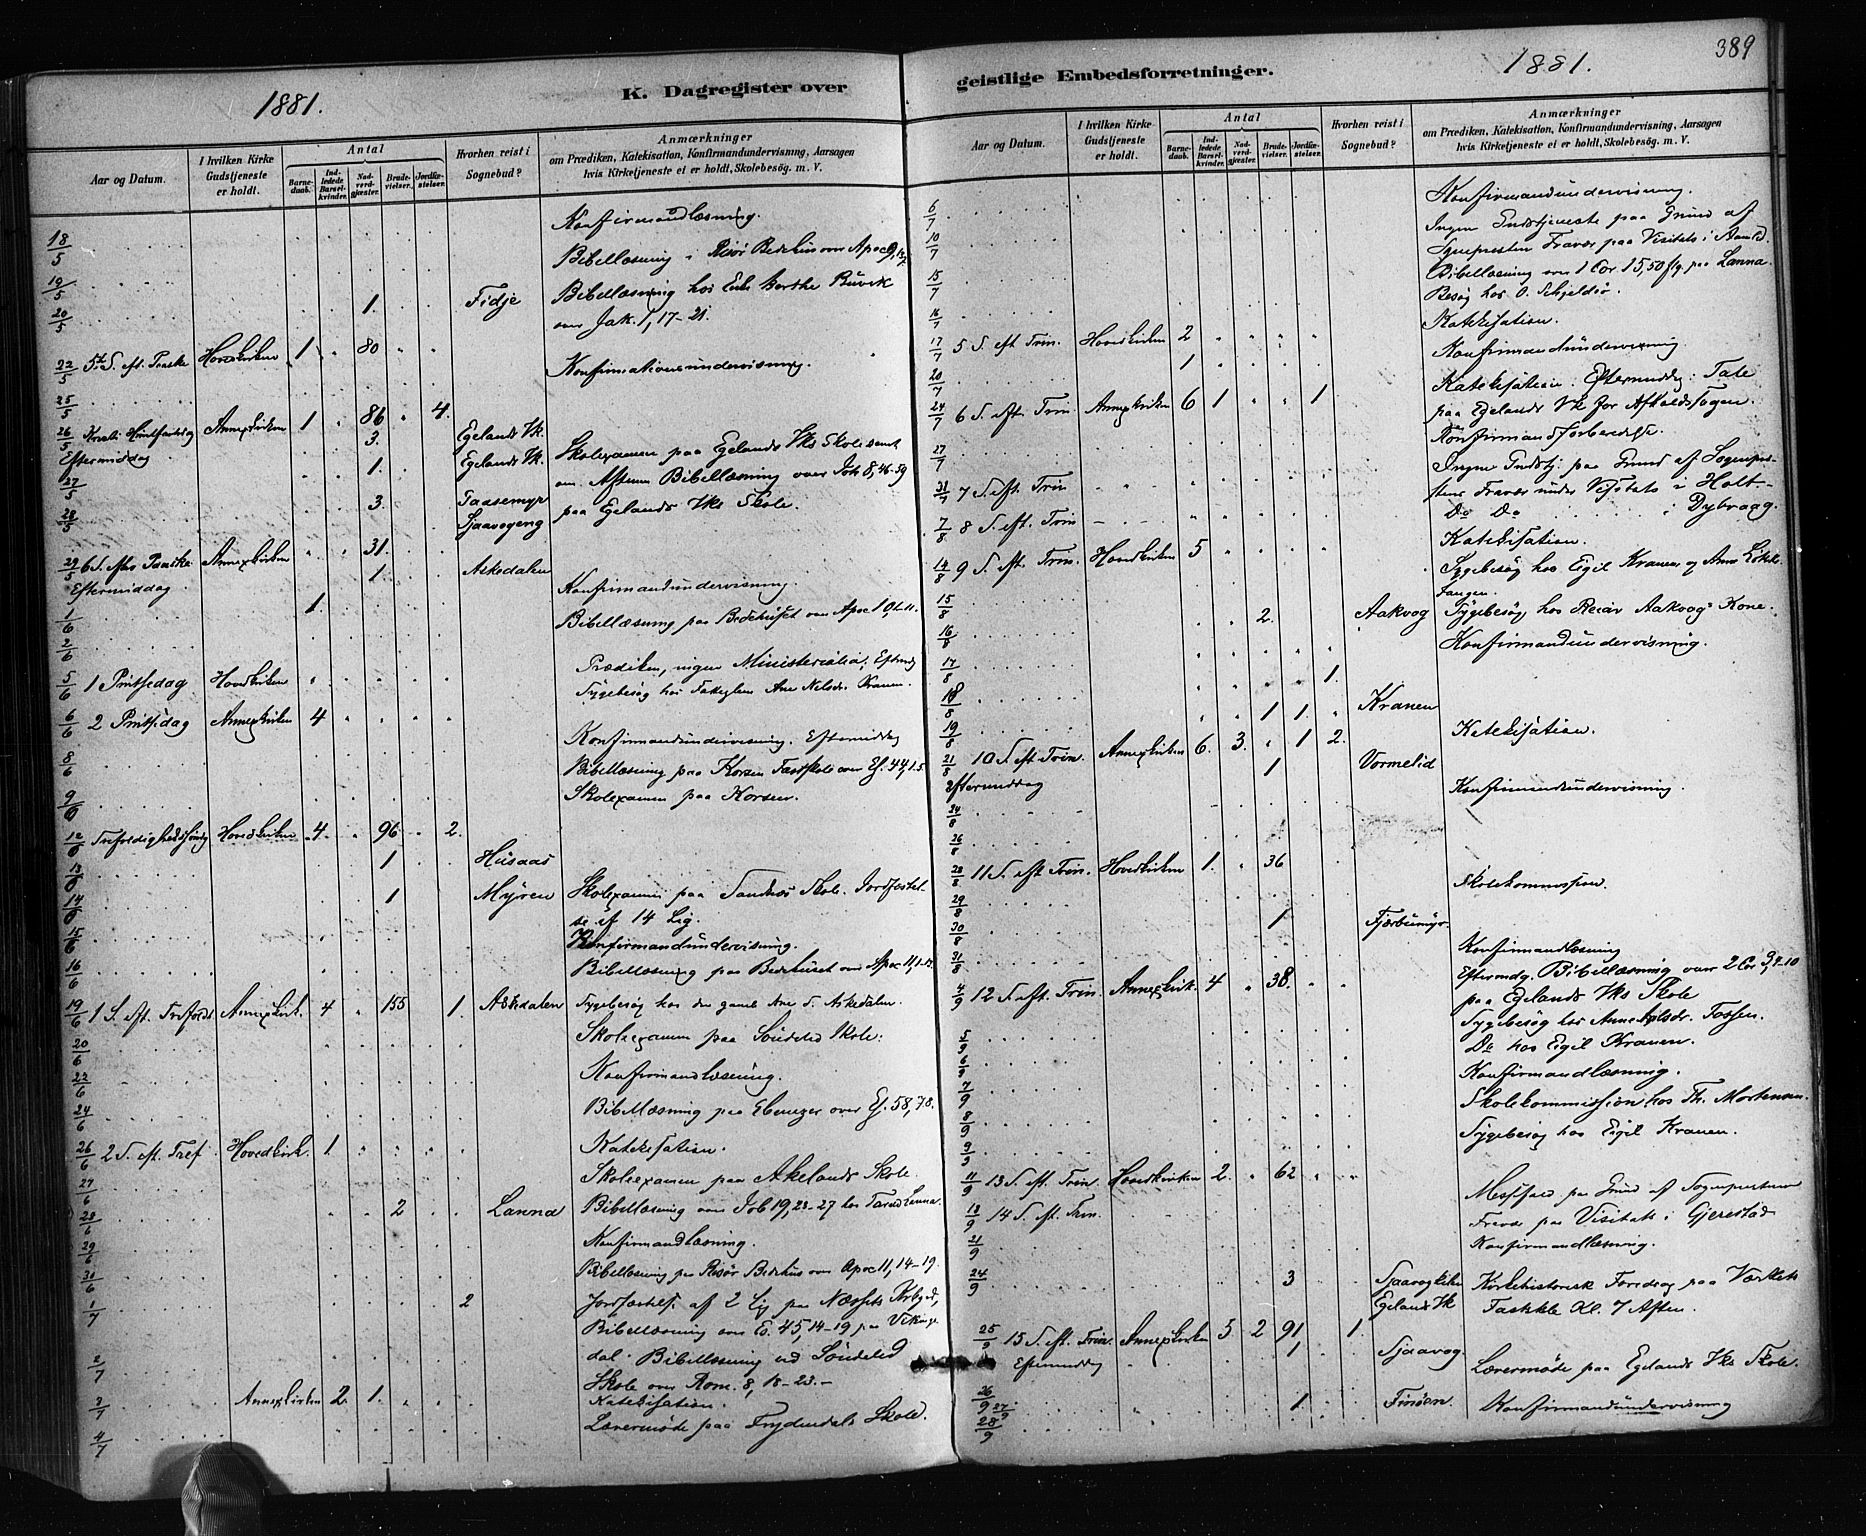 1881.
K. Dagregister over
Aar og Datum.
I hvilken Kirke Gudstjeneste er holdt.
Antal
Barnedaab.
Indledede Barselkvinder.
Nadverdgjæster.
Brudevielser.
Jordfæstelser.
Hvorhen reist i Sognebud?
Anmærkninger
om Prædiken, Katekisation, Konfirmandundervisning, Aarsagen
hvis Kirketjeneste ei er holdt, Skolebesög. m. V.
18/5 Konfirmandlæsning.
19/5 Bibellæsning i Risör Bedehus over Apoc 9,
20/5 1. Fidje Bibellæsning hos Enke Berthe Buvik
over Jak. 1, 17-21.
22/5 5te S. eft. Paaske Hovedkirken 1 80
25/5 Konfirmationsundervisning.
26/5 Kristi Himmelfartsdag Annexkirken 1 86 4.
Eftermiddag 3. Egelands Vk.
27/5 1. Egelands Vk. Skolexamen paa Egelands Vks Skole samt
om Aftenen Bibellæsning over Joh 8, 46-59
28/5 3. Taasemyr paa Egelands Vks Skole.
Sjaavogeng
29/5 6 S. efter Paaske Annexkirken 31.
Eftermiddag 1. Askedalen
1/6 1. Konfirmandundervisning.
2/6 Bibellæsning paa Bedehuset over Apoc 10, 1-11.
5/6 1 Pintsedag Hovedkirken Prædiken, ingen Ministerialia; Efterm
Sygebesög hos Ane Nilsdr. Kranen.
6/6 2 Pintsedag Annexkirken 4
8/6 Konfirmandundervisning. Eftermiddag
Bibellæsning paa Korsen Fastskole over Es. 44, 1-5.
9/6 Skolexamen paa Korsen.
12/6 Trefoldighedssöndag Hovedkirken 4. 96 2.
13/6 1 Husaas
14/6 1 Myren Skolexamen paa Sandnes Skole. Jordfæstel
se af 14 Lig.
15/6 Konfirmandundervisning.
16/6 Bibellæsning paa Bedehuset over Apoc 11, 1-13.
19/6 1 S. eft. Trefold. Annexkirk. 4 155 1. Askedalen Sygebesög hos den gamle Ane S. Askedalen.
20/6 Skolexamen paa Söndeled Skole.
22/6 Konfirmandlæsning.
24/6 Bibellæsning paa Ebenezer over Es. 58, 7-8.
26/6 2 S. eft. Tref. Hovedkirk. 1 Katekisation.
27/6 Skoleexamen paa Akelands Skole
28/6 2 Lanna Bibellæsning over Job 19, 23-27 hos Lanna.
29/6 Konfirmandlæsning.
30/6 Bibellæsning paa Risör Bedehus over Apoc 11, 14-19.
1/7 2 Jordfæstelse af 2 Lig paa Næssets Kirkegd,
Bibellæsning over Es. 45, 14-19 paa Vikinge
2/7 dal. Bibellæsning ved Söndeled
Skole over Rom. 8, 18-23.-
3/7 Annexkirken 2. 1. Katekisation.
4/7 Lærermöde paa Frydendals Skole.
389
1881.
geistlige Embedsforretninger.
Aar og Datum.
I hvilken Kirke Gudstjeneste er holdt.
Antal
Barnedaab.
Indledede Barselkvinder.
Nadverdgjæster.
Brudevielser.
Jordfæstelser.
Hvorhen reist i Sognebud?
Anmærkninger
om Prædiken, Katekisation, Konfirmandundervisning, Aarsagen
hvis Kirketjeneste ei er holdt, Skolebesög. m. V.
6/7 Konfirmandundervisning.
10/7 Ingen Gudstjeneste paa Grund af
Sognepresten Fravær paa Visitats i
15/7 Bibellæsning over 1 Cor 15,50 flg. paa Lanna.
16/7 Besög hos O. Skjeldsö.
17/7 5 S. eft Trin. Hovedkirken 2 Katekisation.
20/7 1 Konfirmandundervisning
24/7 6 S. efter Trin Annexkirken 6 1 1 Katekisation. Eftermiddag: Tale
paa Egelands Vk for Afholdssagen.
27/7 Konfirmandforberedelse.
31/7 7 S. eft. Trin Ingen Gudstj. paa Grund af Sognepre-
stens Fravær under Visitats i Holt-
7/8 8 S. eft. Trin Do Do i Dybvaag.
14/8 9 S. eft. Trin. Hovedkirken 5 Katekisation.
15/8 Sygebesög hos Egil Kranen og Anne
Tangen.
16/8 2. Aakvog Sygebesög hos Aakvogs Kone.
17/8 Konfirmandundervisning.
18/8 1.
19/8 1 1. Kranen
21/8 10 S. eft Trin. Annexkirken 6. 3. 1 2. Katekisation.
Eftermiddag 1 Vormelid
24/8 Konfirmandsundervisning.
26/8
28/8 11 S. eft Trin. Hovedkirken 1. 36
29/8 Skolekommission.
30/8 1 Fjærbumyr.
31/8 Konfirmandlæsning
4/9 12 S. eft. Trin. Annexkirk. 4 38. Eftermdg. Bibellæsning over 2 Cor 3, 4-10
paa Egelands Vks Skole
5/9 Sygebesög hos Anne Nilsdr. Fossen.
6/9 Do hos Egil Kranen.
7/9 Konfirmandlæsning.
8/9 Skolekommission hos Th. Mortensen.
9/9 Sygebesög hos Egil Kranen.
11/9 13 S. eft. Trin. Hovedkirken 2. 62
18/9 14 S. eft. Trin. Messefald paa Grund af Sognepresten
Fravær paa Visitats i Gjerestad
21/9 Konfirmandlæsning.
24/9 3 Sjaavogkilen Kirkehistorisk Foredrag paa Værkets
Egelands Vk Kl. 7 Aften.
25/9 15 S. eft. Trin. Annexkirken 5 2 91 1.
Eftermiddag 1 Sjaavog
26/9 Lærermöde paa Egelands Vks Skole.
27/9 1
28/9 Konfirmandundervisning